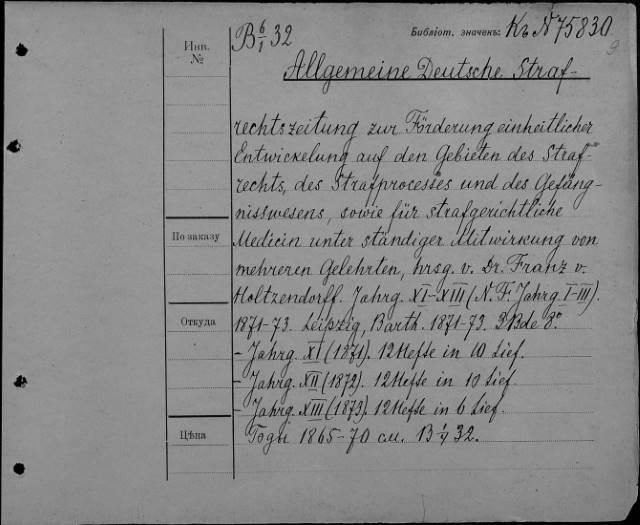 Инв. №
B 6/I 32
Библіот. значекъ: Къ N 75830
9
Allgemeine Deutsche Straf-
rechtszeitung zur Förderung einheitlicher
Entwickelung auf den Gebieten des Straf-
rechts, des Strafprocesses und des Gefäng-
nisswesens, sowie für strafgerichtliche
По заказу
Medicin unter ständiger Mitwirkung von
mehreren Gelehrten, hrsg. v. Dr. Franz v.
Holtzendorff. Jahrg. XI-XIII (N. F. Jahrg. I-III).
Откуда
1871-73. Leipzig, Barth. 1871-73. 3 Bde 8º.
- Jahrg. XI (1871). 12 Hefte in 10 Lief.
- Jahrg. XII (1872). 12 Hefte in 10 Lief.
- Jahrg. XIII (1873). 12 Hefte in 6 Lief.
Цѣна
Годы 1865-70 см. B 32.